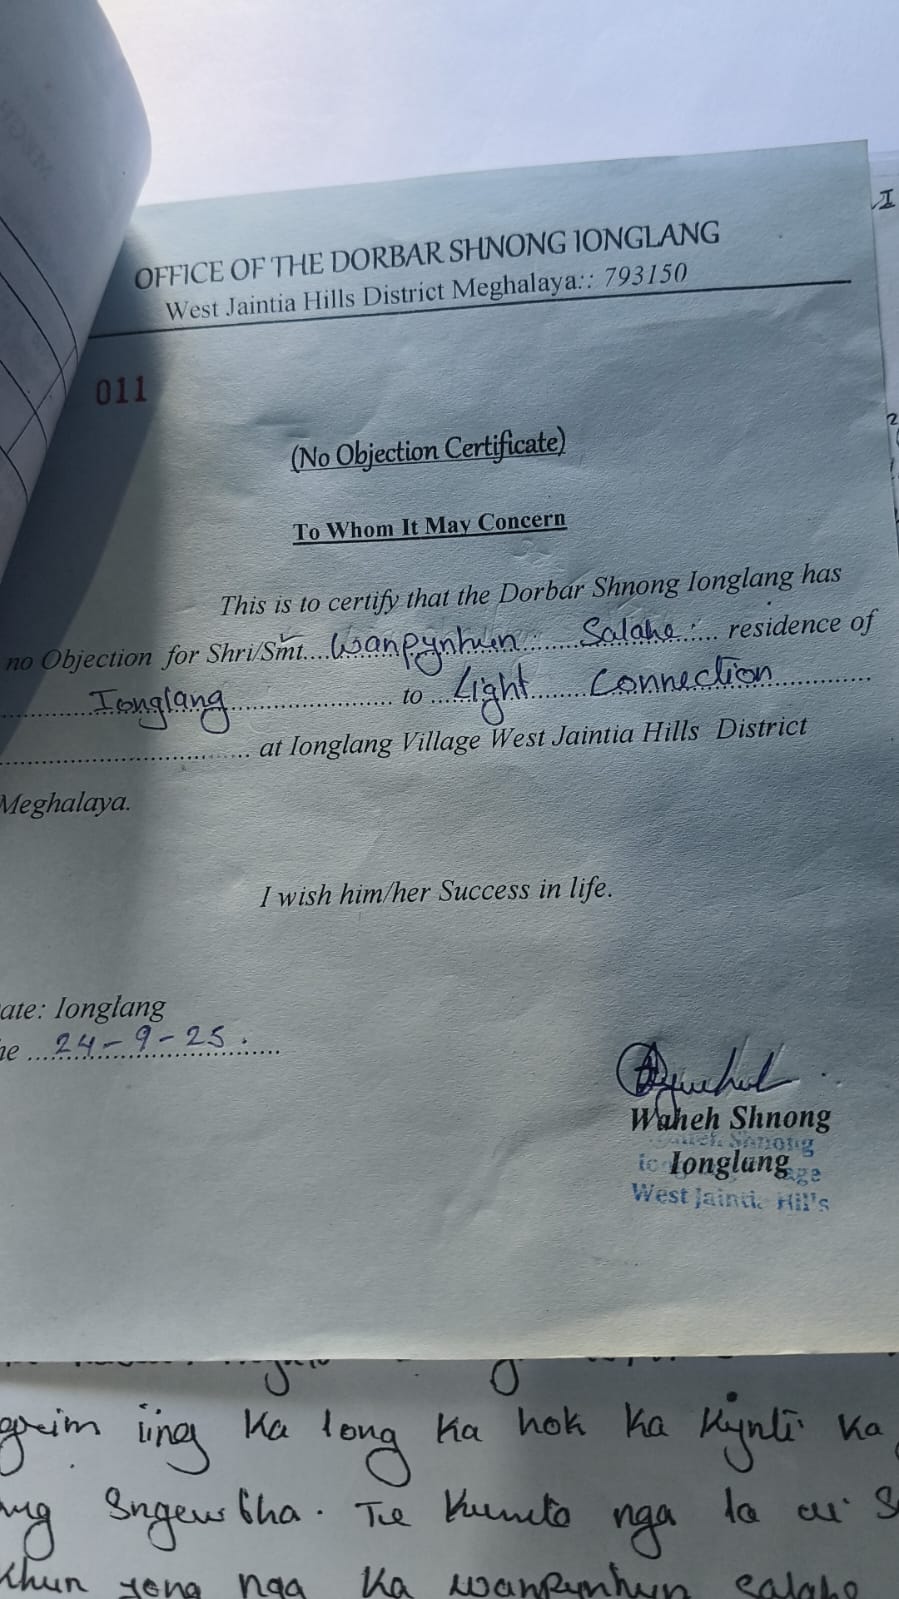 OFFICE OF THE DORBAR SHNONG IONGLANG
West Jaintia Hills District Meghalaya:: 793150
011
(No Objection Certificate)
To Whom It May Concern
This is to certify that the Dorbar Shnong Ionglang has
no Objection for Shri/Smt....Wanpynhun.......Salahe..... residence of
............Ionglang...................... to ...Light.......Connection............
............................... at Ionglang Village West Jaintia Hills District
Meghalaya.
I wish him/her Success in life.
ate: Ionglang
he ....24-9-25.......
Waheh Shnong
Shnong
Ionglang
West Jaintia Hill's
iing Ka long Ka hok Ka Kynti Ka
Sngewbha. Te Kumta nga la ai
Khun jong nga Ka wanpynhun salahe